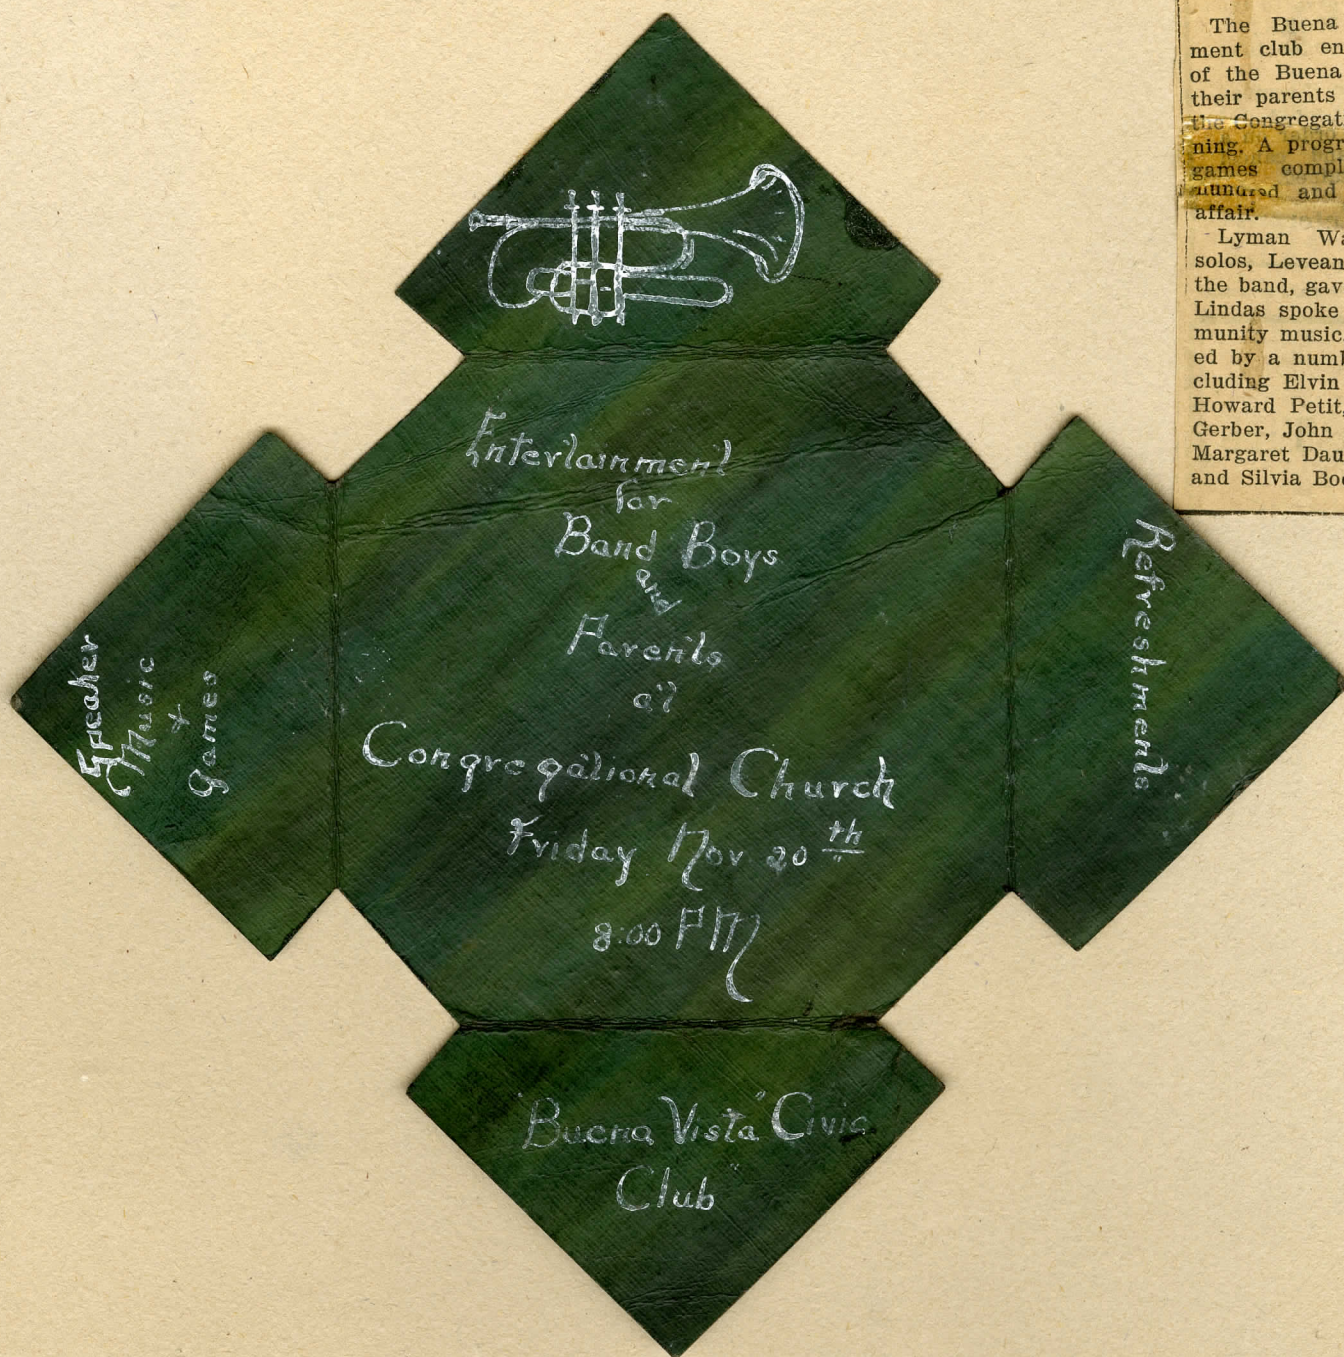 Entertainment
for
Band Boys
and
Parents
at
Congregational Church
Friday Nov. 20th
8:00 PM
Speaker
Music
+
Games
Refreshments
"Buena Vista" Civic
Club"
The Buena
ment club en
of the Buena
their parents
the Congregat
ning. A progr
games compl
hundred and
affair.
Lyman Wa
solos, Levean
the band, gav
Lindas spoke
munity music.
ed by a numb
cluding Elvin
Howard Petit,
Gerber, John
Margaret Dau
and Silvia Boe